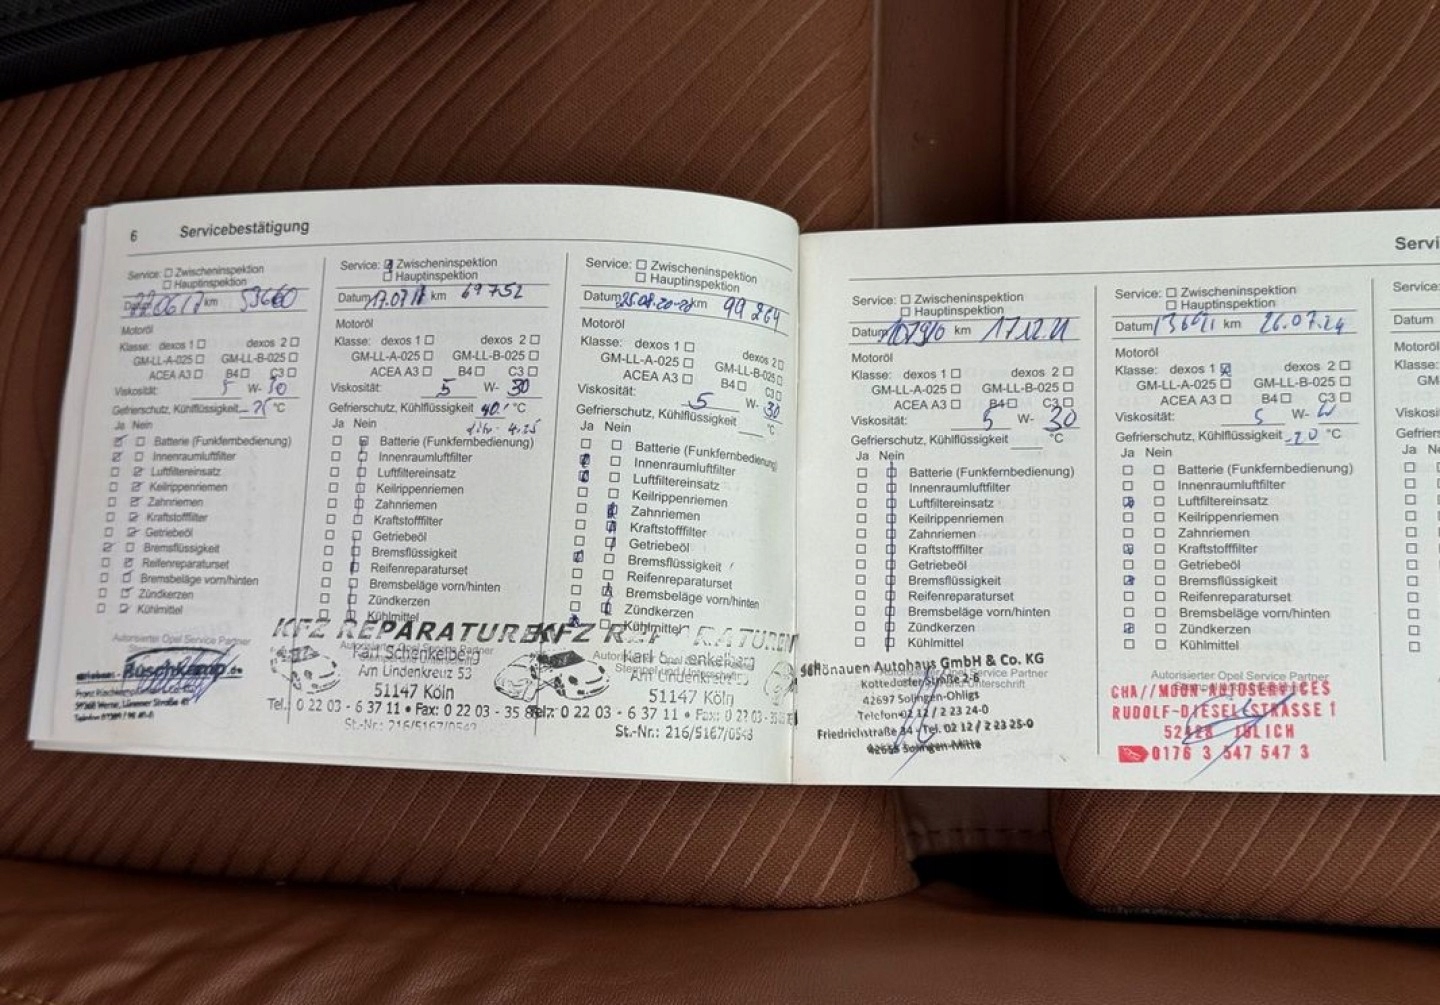 6 Servicebestätigung
Service: Zwischeninspektion
Hauptinspektion
km 53660
Motoröl
Klasse: dexos 1 dexos 2
GM-LL-A-025 GM-LL-B-025
ACEA A3 B4 C3
Viskosität: 5 W-30
Gefrierschutz, Kühlflüssigkeit °C
Ja Nein
Batterie (Funkfernbedienung)
Innenraumluftfilter
Luftfiltereinsatz
Keilrippenriemen
Zahnriemen
Kraftstofffilter
Getriebeöl
Bremsflüssigkeit
Reifenreparaturset
Bremsbeläge vorn/hinten
Zündkerzen
Kühlmittel
Autorisierter Opel Service Partner
Service: Zwischeninspektion
Hauptinspektion
Datum km 69752
Motoröl
Klasse: dexos 1 dexos 2
GM-LL-A-025 GM-LL-B-025
ACEA A3 B4 C3
Viskosität: 5 W-30
Gefrierschutz, Kühlflüssigkeit °C
Ja Nein
Batterie (Funkfernbedienung)
Innenraumluftfilter
Luftfiltereinsatz
Keilrippenriemen
Zahnriemen
Kraftstofffilter
Getriebeöl
Bremsflüssigkeit
Reifenreparaturset
Bremsbeläge vorn/hinten
Zündkerzen
Kühlmittel
KFZ REPARATUREN
Karl Schenkelberg
Am Lindenkreuz 53
51147 Köln
Tel.: 0 22 03 - 6 37 11 • Fax: 0 22 03 - 35
St.-Nr.: 216/5167/0543
Service: Zwischeninspektion
Hauptinspektion
Datum km 99264
Motoröl
Klasse: dexos 1 dexos 2
GM-LL-A-025 GM-LL-B-025
ACEA A3 B4 C3
Viskosität: 5 W-30
Gefrierschutz, Kühlflüssigkeit °C
Ja Nein
Batterie (Funkfernbedienung)
Innenraumluftfilter
Luftfiltereinsatz
Keilrippenriemen
Zahnriemen
Kraftstofffilter
Getriebeöl
Bremsflüssigkeit
Reifenreparaturset
Bremsbeläge vorn/hinten
Zündkerzen
Kühlmittel
KFZ REPARATUREN
Am Lindenkreuz
51147 Köln
0 22 03 - 6 37 11 • Fax: 0 22 03 -
St.-Nr.: 216/5167/0543
Servi
Service: Zwischeninspektion
Hauptinspektion
Datum km 17.12.21
Motoröl
Klasse: dexos 1 dexos 2
GM-LL-A-025 GM-LL-B-025
ACEA A3 B4 C3
Viskosität: 5 W-30
Gefrierschutz, Kühlflüssigkeit °C
Ja Nein
Batterie (Funkfernbedienung)
Innenraumluftfilter
Luftfiltereinsatz
Keilrippenriemen
Zahnriemen
Kraftstofffilter
Getriebeöl
Bremsflüssigkeit
Reifenreparaturset
Bremsbeläge vorn/hinten
Zündkerzen
Kühlmittel
Schönauen Autohaus GmbH & Co. KG
Kottedorfer Straße 2-6
42697 Solingen-Ohligs
Telefon 02 12 / 2 23 24-0
Friedrichstraße 84 - Tel. 02 12 / 2 23 25-0
42655 Solingen-Mitte
Service: Zwischeninspektion
Hauptinspektion
Datum km 26.07.24
Motoröl
Klasse: dexos 1 dexos 2
GM-LL-A-025 GM-LL-B-025
ACEA A3 B4 C3
Viskosität: 5 W-
Gefrierschutz, Kühlflüssigkeit -20 °C
Ja Nein
Batterie (Funkfernbedienung)
Innenraumluftfilter
Luftfiltereinsatz
Keilrippenriemen
Zahnriemen
Kraftstofffilter
Getriebeöl
Bremsflüssigkeit
Reifenreparaturset
Bremsbeläge vorn/hinten
Zündkerzen
Kühlmittel
Autorisierter Opel Service Partner
CHA//MOUN AUTOSERVICES
RUDOLF-DIESELSTRASSE 1
52428 JÜLICH
0176 3 547 547 3
Service:
Datum
Motoröl
Klasse:
Viskosi
Gefrier
Ja